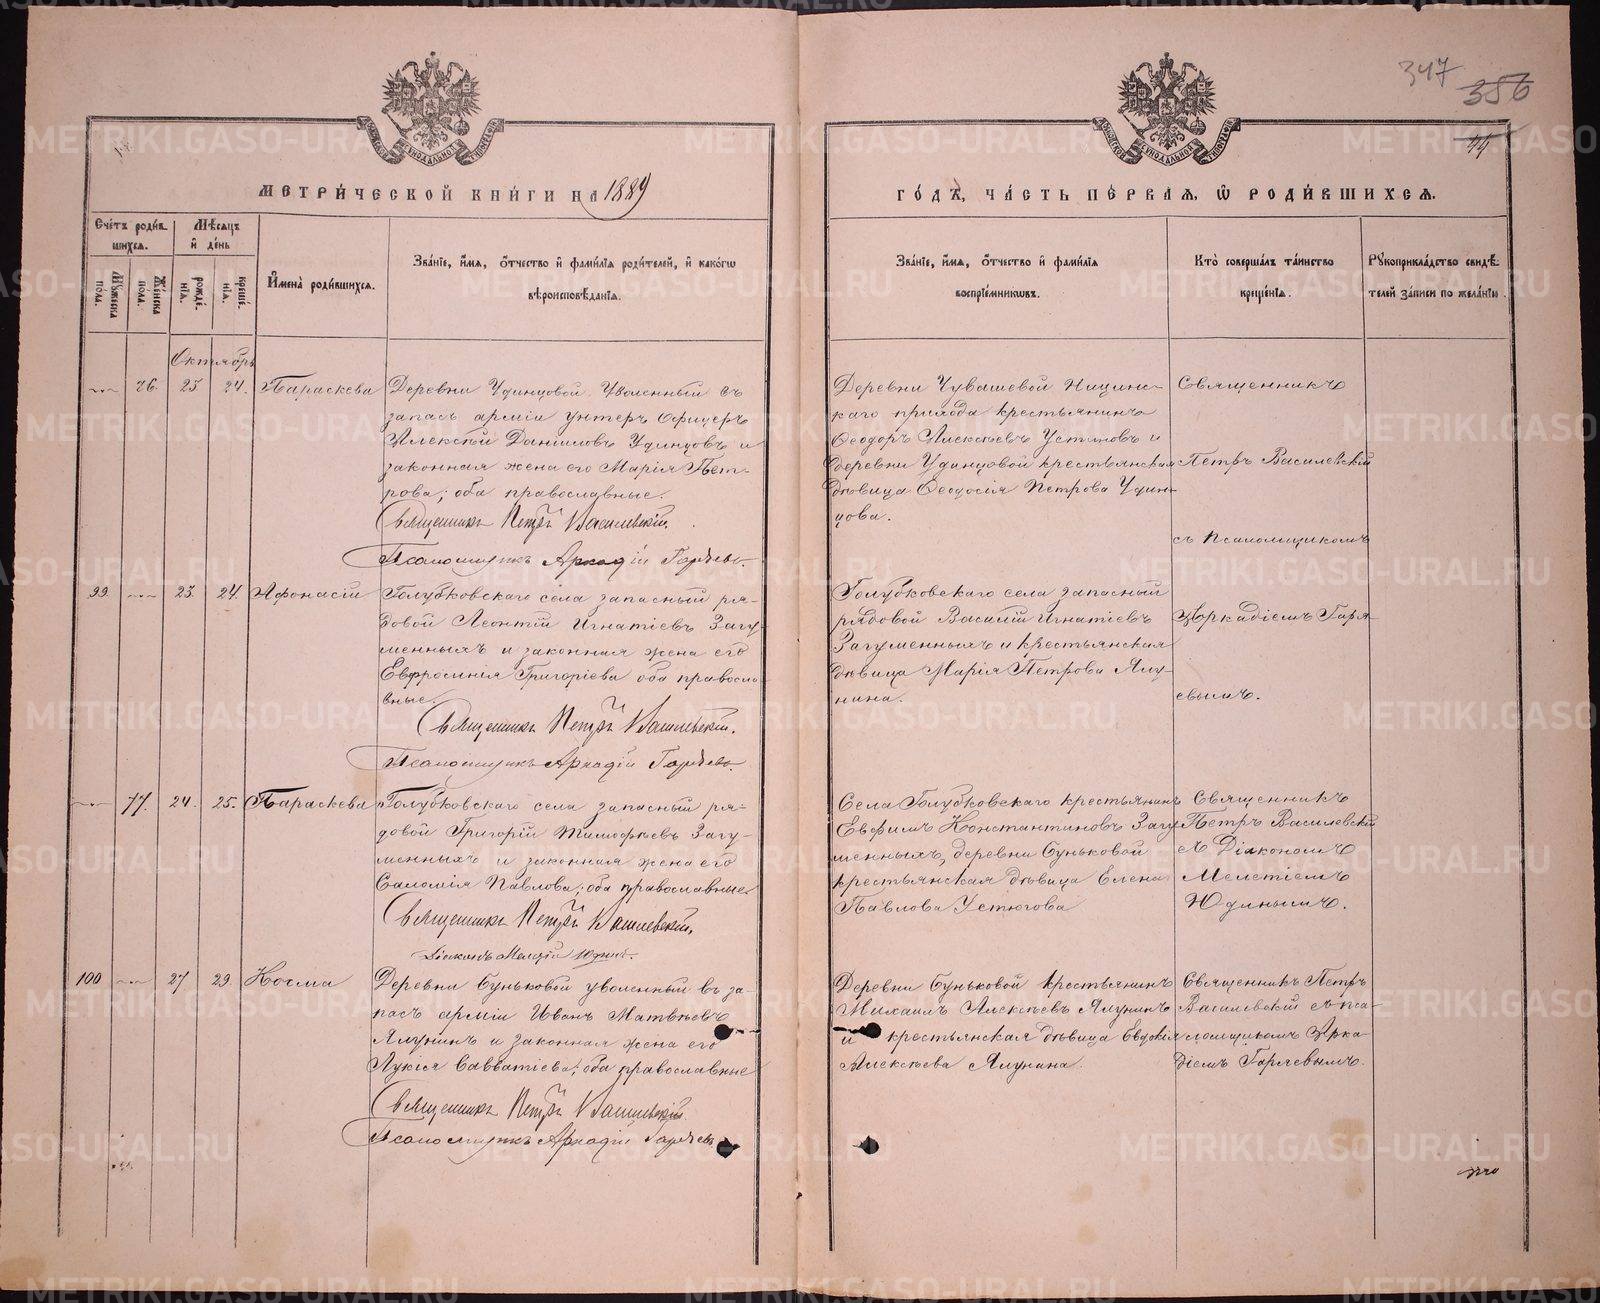 347
356
44
МЕТРИ́ЧЕСКОЙ КНИ́ГИ НА 1889
ГО́ДЪ, ЧА́СТЬ ПЕ́РВАЯ, Ѡ РОДИ́ВШИХСЯ.
Сче́тъ роди́в-
шихся.
Мѣ́сяцъ
и҆ де́нь
Му́жеска
по́ла.
Же́нска
по́ла.
рожде́-
нїѧ.
креще́-
нїѧ.
И҆мена̀ роди́вшихся.
Зва́нїе, и҆́мя, ѻ҆́тчество и҆ фами́лїя роди́телей, и҆ како́гѡ
вѣроисповѣ́данїя.
Зва́нїе, и҆́мя, ѻ҆́тчество и҆ фами́лїя
воспрїе́мникѡвъ.
Кто̀ соверша́лъ та́инство
креще́нїя.
Рꙋкоприкла́дство свидѣ́-
телей за́писи по жела́нїю.
Октябрь
76. 23 24. Параскева
Деревни Удинцовой уволенный въ
запасъ арміи унтеръ офицеръ
Алексѣй Даниловъ Удинцовъ и
законная жена его Марія Пет-
рова; оба православные.
Священникъ Петръ Василевскій.
Псаломщикъ Аркадій Гаряевъ.
Деревни Чувашевой Ницинс-
каго прихода крестьянинъ
Ѳеодоръ Алексѣевъ Устиновъ и
деревни Удинцовой крестьянская
дѣвица Ѳеодосія Петрова Удин-
цова.
Священникъ
Петръ Василевскій
съ псаломщикомъ
Аркадіемъ Гаря-
евымъ.
99. 23. 24. Афонасій
Голубковскаго села запасный ря-
довой Леонтій Игнатіевъ Загу-
менныхъ и законная жена его
Евфросинія Григоріева оба правосла-
вные.
Священникъ Петръ Василевскій.
Псаломщикъ Аркадій Гаряевъ.
Голубковскаго села запасный
рядовой Василій Игнатіевъ
Загуменныхъ и крестьянская
дѣвица Марія Петрова Ялу-
нина.
77. 24. 25. Параскева
Голубковскаго села запасный ря-
довой Григорій Тимофѣевъ Загу-
менныхъ и законная жена его
Саломія Павлова; оба православные
Священникъ Петръ Василевскій.
Діаконъ Мелетій Юдинъ.
Села Голубковскаго крестьянинъ
Евфимъ Константиновъ Загу-
менныхъ, деревни Буньковой
крестьянская дѣвица Елена
Павлова Устюгова
Священникъ
Петръ Василевскій
съ Діакономъ
Мелетіемъ
Юдинымъ.
100 27 29. Косма
Деревни Буньковой уволенный въ за-
пасъ арміи Иванъ Матвѣевъ
Ялунинъ и законная жена его
Лукія Савватіева; оба православные
Священникъ Петръ Василевскій.
Псаломщикъ Аркадій Гаряевъ
Деревни Буньковой крестьянинъ
Михаилъ Алексѣевъ Ялунинъ
и крестьянская дѣвица Евдокія
Алексѣева Ялунина.
Священникъ Петръ
Василевскій съ пса-
ломщикомъ Арка-
діемъ Гаряевымъ.
METRIKI.GASO-URAL.RU